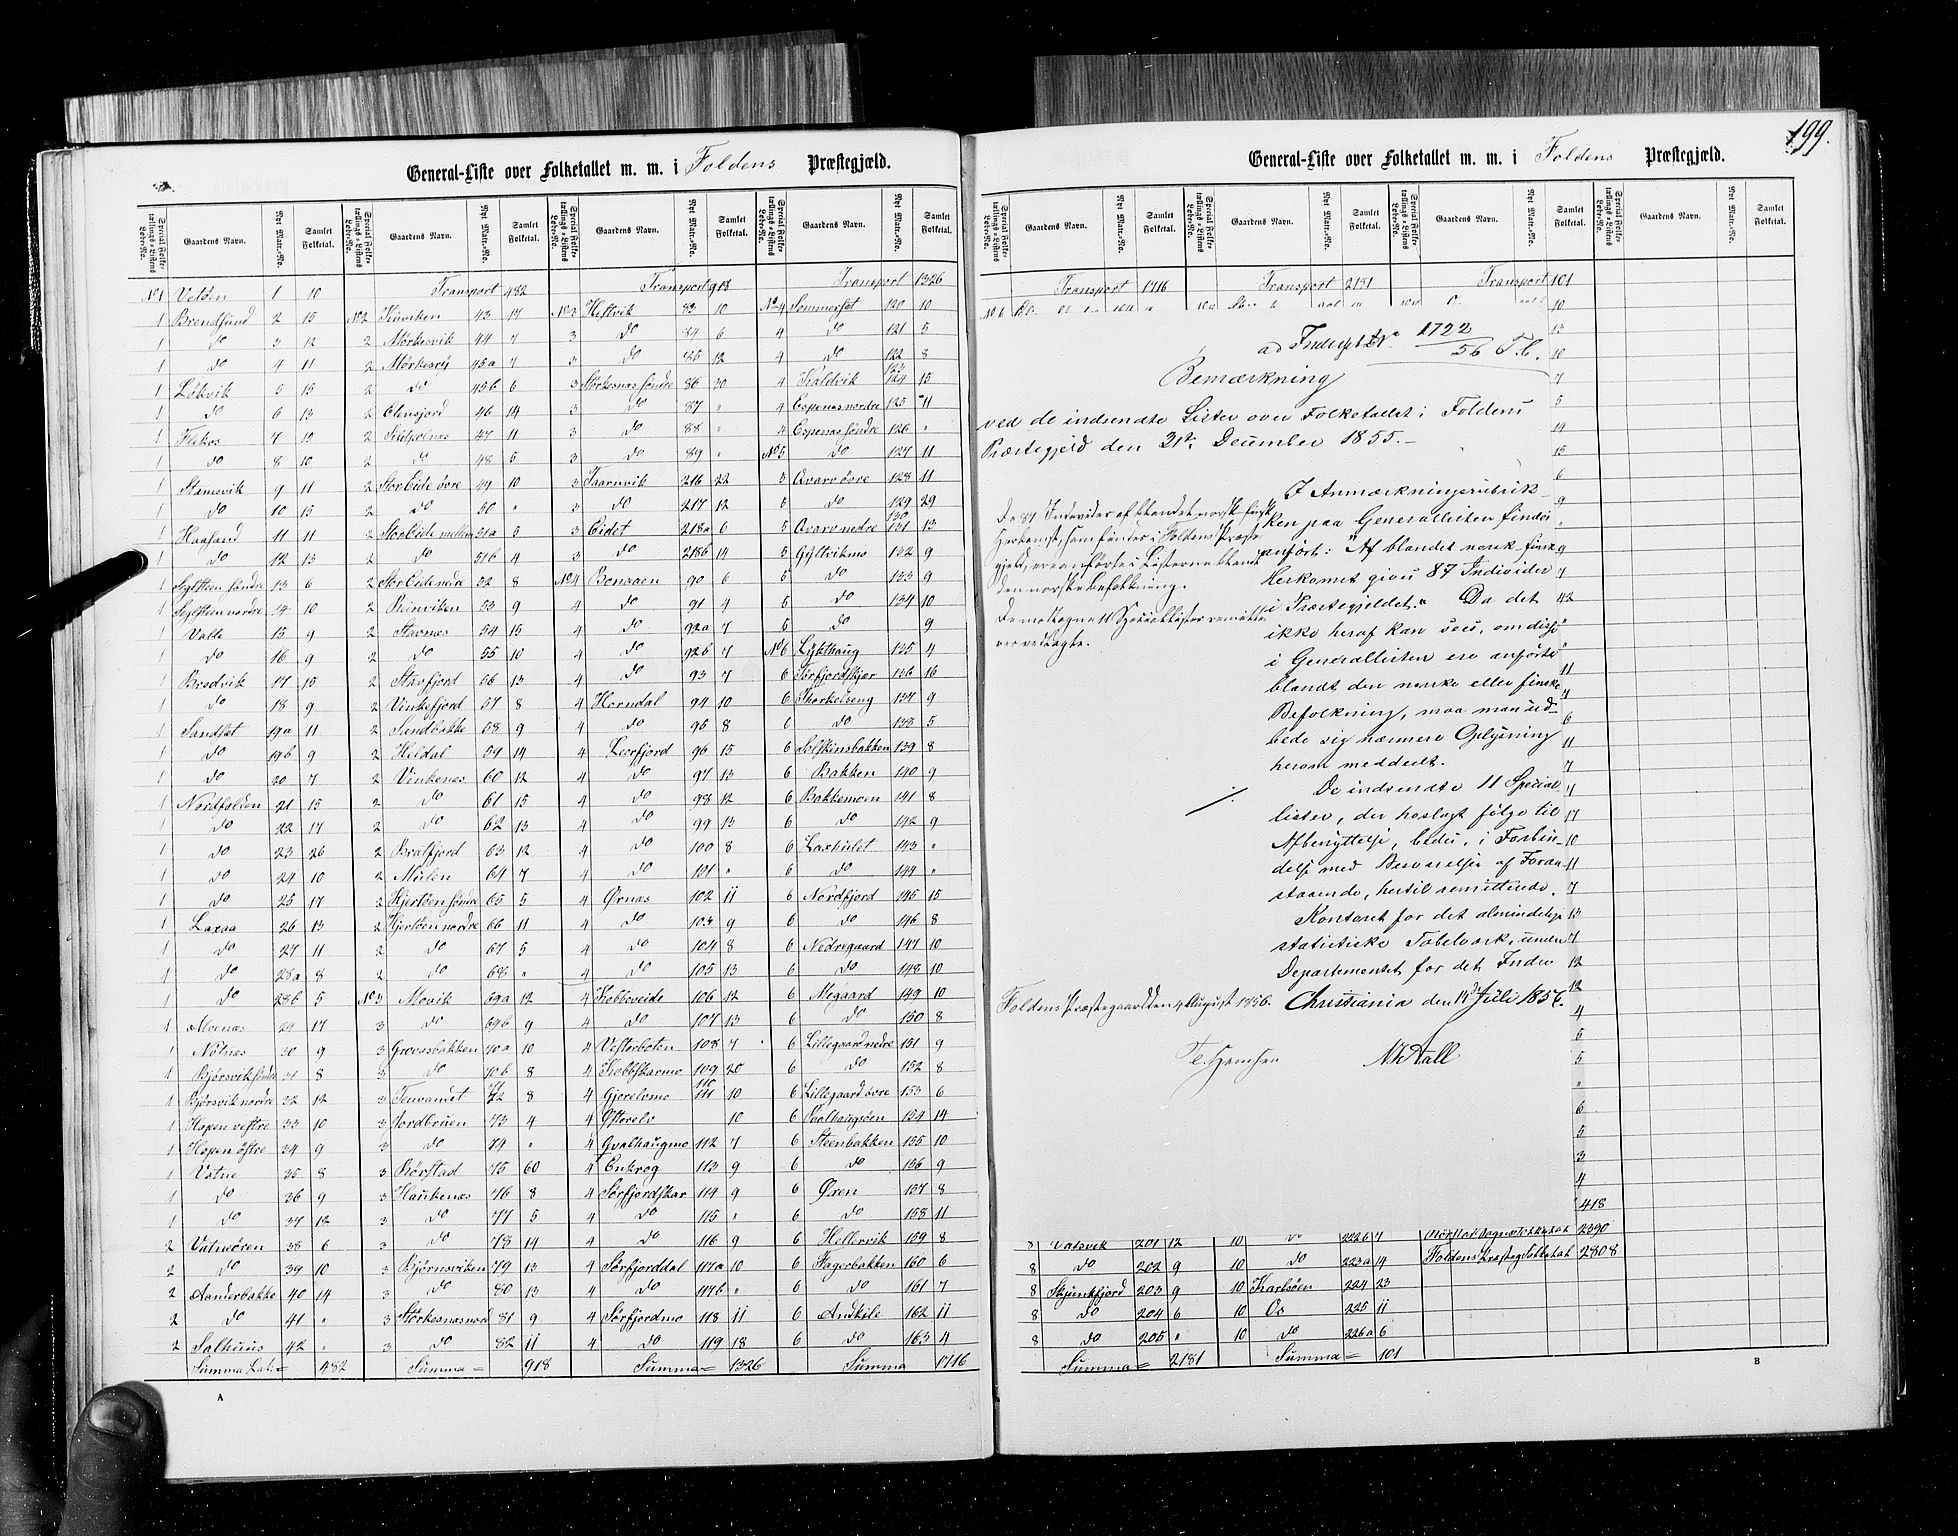 General-Liste over Folketallet m. m. i Foldens Præstegjæld.
Special Folketællings-Listens Løbe-No. Gaardens Navn. Nyt Matr.-No. Samlet Folketal.
No 1 Vetøen 1 10
1 Brendsund 2 15
1 do 3 12
1 do 4 11
1 Løkvik 5 15
1 do 6 13
1 Flekos 7 10
1 do 8 10
1 Stamsvik 9 11
1 do 10 15
1 Haasand 11 11
1 do 12 13
1 13 6
1 14 10
1 Valle 15 9
1 do 16 9
1 Bredvik 17 15
1 do 18 9
1 Sandset 19a 11
1 do 19b 9
1 do 20 7
1 Nordfolden 21 15
1 do 22 17
1 do 23 26
1 do 24 10
1 do 25 17
1 Laxaa 26 13
1 do 27 11
1 do 28a 8
1 do 28b 5
1 Alvenæs 29 17
1 Nótnæs 30 9
1 Bjórsvik søndre 31 8
1 Bjórsvik nordre 32 12
1 Hopen vestre 33 10
1 Hopen østre 34 9
1 Vatne 35 8
1 do 36 9
1 do 37 12
2 Vatmóren 38 6
2 do 39 10
2 Aanderbakke 40 14
2 do 41 "
2 Salhuus 42 "
Summa Lat. = 482
Transport 482
No 2 43 17
2 Mórkesvik 44 7
2 45a 7
2 do 45b 6
2 46 14
2 47 11
2 do 48 5
2 Stor Eide óvre 49 10
2 do 50 "
2 Stor Eide mellem 51a 5
2 do 51b 4
2 Stor Eide nedre 52 8
2 Reinviken 53 9
2 Stavnæs 54 15
2 do 55 10
2 Stavfjord 56 13
2 Vinkefjord 57 8
2 Sandbakke 58 9
2 Heldal 59 14
2 Vinkenæs 60 12
2 do 61 15
2 do 62 13
2 63 12
2 Múlen 64 7
2 Hjertóen søndre 65 5
2 Hjertóen nordre 66 11
2 do 67 5
2 do 68 "
No 3 Movik 69a 12
3 do 69b 9
3 70a 10
3 do 70b 8
3 71 72 8
3 73 4
3 do 74 "
3 Rórstad 75 60
3 Haukenæs 76 8
3 do 77 5
3 do 78 14
3 Bjórnsviken 79 13
3 do 80 13
3 81 9
3 do 82 11
Summa = 918
Transport 918
No 3 Hestvik 83 10
3 do 84 6
3 do 85 12
3 Stórkesnæs søndre 86 30
3 do 87 "
3 do 88 "
3 do 89 "
3 Taarnvik 216 22
3 do 217 12
3 Eidet 218a 6
3 do 218b 14
No 4 Bonaaen 90 6
4 do 91 4
4 do 92a 7
4 do 92b 7
4 do 93 7
4 Horndal 94 10
4 do 95 8
4 Leerfjord 96 15
4 do 97 13
4 do 98 12
4 do 99 13
4 do 100 8
4 do 101 "
4 Ørnæs 102 11
4 do 103 9
4 do 104 8
4 do 105 13
4 Kobbveide 106 12
4 do 107 13
4 Vesterboten 108 7
4 Kobbskarmo 109 20
4 Gjerelvmo 110 111 10
4 Østerelv 10
4 Gvalhaugmo 112 7
4 Enkrog 113 9
4 Sørfjordskar 114 9
4 do 115 "
4 do 116 9
4 Sórfjorddal 117a 10
4 do 117b "
4 Sórfjordmo 118 11
4 do 119 18
Summa = 1326
Transport 1326
No 4 Sommerset 120 10
4 do 121 5
4 do 122 8
4 Kaldvik 123 124 15
4 Espenæs nordre 125 11
4 Espenæs søndre 126 "
No 5 do 127 11
5 Qvarv óvre 128 11
5 do 129 29
5 Qvarv nedre 130 131 13
5 Gyltvikmo 132 9
5 do 133 9
5 do 134 10
5 do 9
No 6 135 4
6 Sørfjordskjær 136 16
6 Storkelseng 137 9
6 do 138 5
6 Solskinsbakken 139 8
6 Bakken 140 9
6 Bakkemoen 141 8
6 do 142 9
6 Laxhulet 143 "
6 do 144 "
6 Nordfjord 145 15
6 do 146 8
6 Nedregaard 147 10
6 do 148 10
6 Megaard 149 10
6 do 150 8
6 Lillegaard nedre 151 9
6 do 152 8
6 Lillegaard óvre 153 6
6 154 14
6 Steenbakken 155 10
6 do 156 9
6 Øren 157 8
6 do 158 11
6 Hellervik 159 8
6 Fagerbakken 160 6
6 do 161 7
6 Andkile 162 11
6 do 163 4
Summa 1716
A
199.
General-Liste over Folketallet m. m. i Foldens Præstegjæld.
Special Folketællings-Listens Løbe-No. Gaardens Navn. Nyt Matr.-No. Samlet Folketal.
Transport 1716 Transport 2181 Transport 101
ad Indegst No 1722/56 T.C.
Bemærkning
ved de indsendte Lister over Folketallet i Foldens
Præstegjeld den 31te December 1855.-
I Anmærkningsrubrik-
ken paa Generallisten findes
anført: "Af blandet norsk-finsk
Herkomst gives 87 Individer
i Præstegjeldet." Da det
ikke heraf kan sees, om disse
i Generallisten ere anførte
blandt den norske eller finske
Befolkning, maa man ud-
bede sig nærmere Oplysning
herom meddeelt.
De indsendte 11 Special
lister, der hoslagt følge til
Afbenyttelse, bedes, i Forbin-
delse med Besvarelse af Foran-
staaende, hertil remitterede.
Kontoret for det almindelige
statistiske Tabelværk, under
Departementet for det Indre
Christiania den 14de Juli 1856.
De 87 Individer af blandet norsk finsk
Herkomst, som findes i Foldens Præste
gjeld, ere anførte i Listerne blandt
den norske Befolkning.
De modtagne 11 Speciallister remitte
res vedlagte.
Foldens Præstegaard den 4 August 1856.
10
13
10
7
5
14
15
6
9
"
9
7
42
"
11
7
6
11
7
4
17
10
11
7
13
7
12
12
4
5
5
"
6
5
3
4
418
8 Valsvik 201 12
8 do 202 9
8 Skjunkfjord 203 9
8 do 204 6
8 do 205 "
Summa = 2181
10 do 226b 7
10 do 223a 19
10 Karlsóen 224 23
10 Os 225 11
10 do 226a 6
Summa = 101
2390
Foldens Præsteg Folketal 2808
B